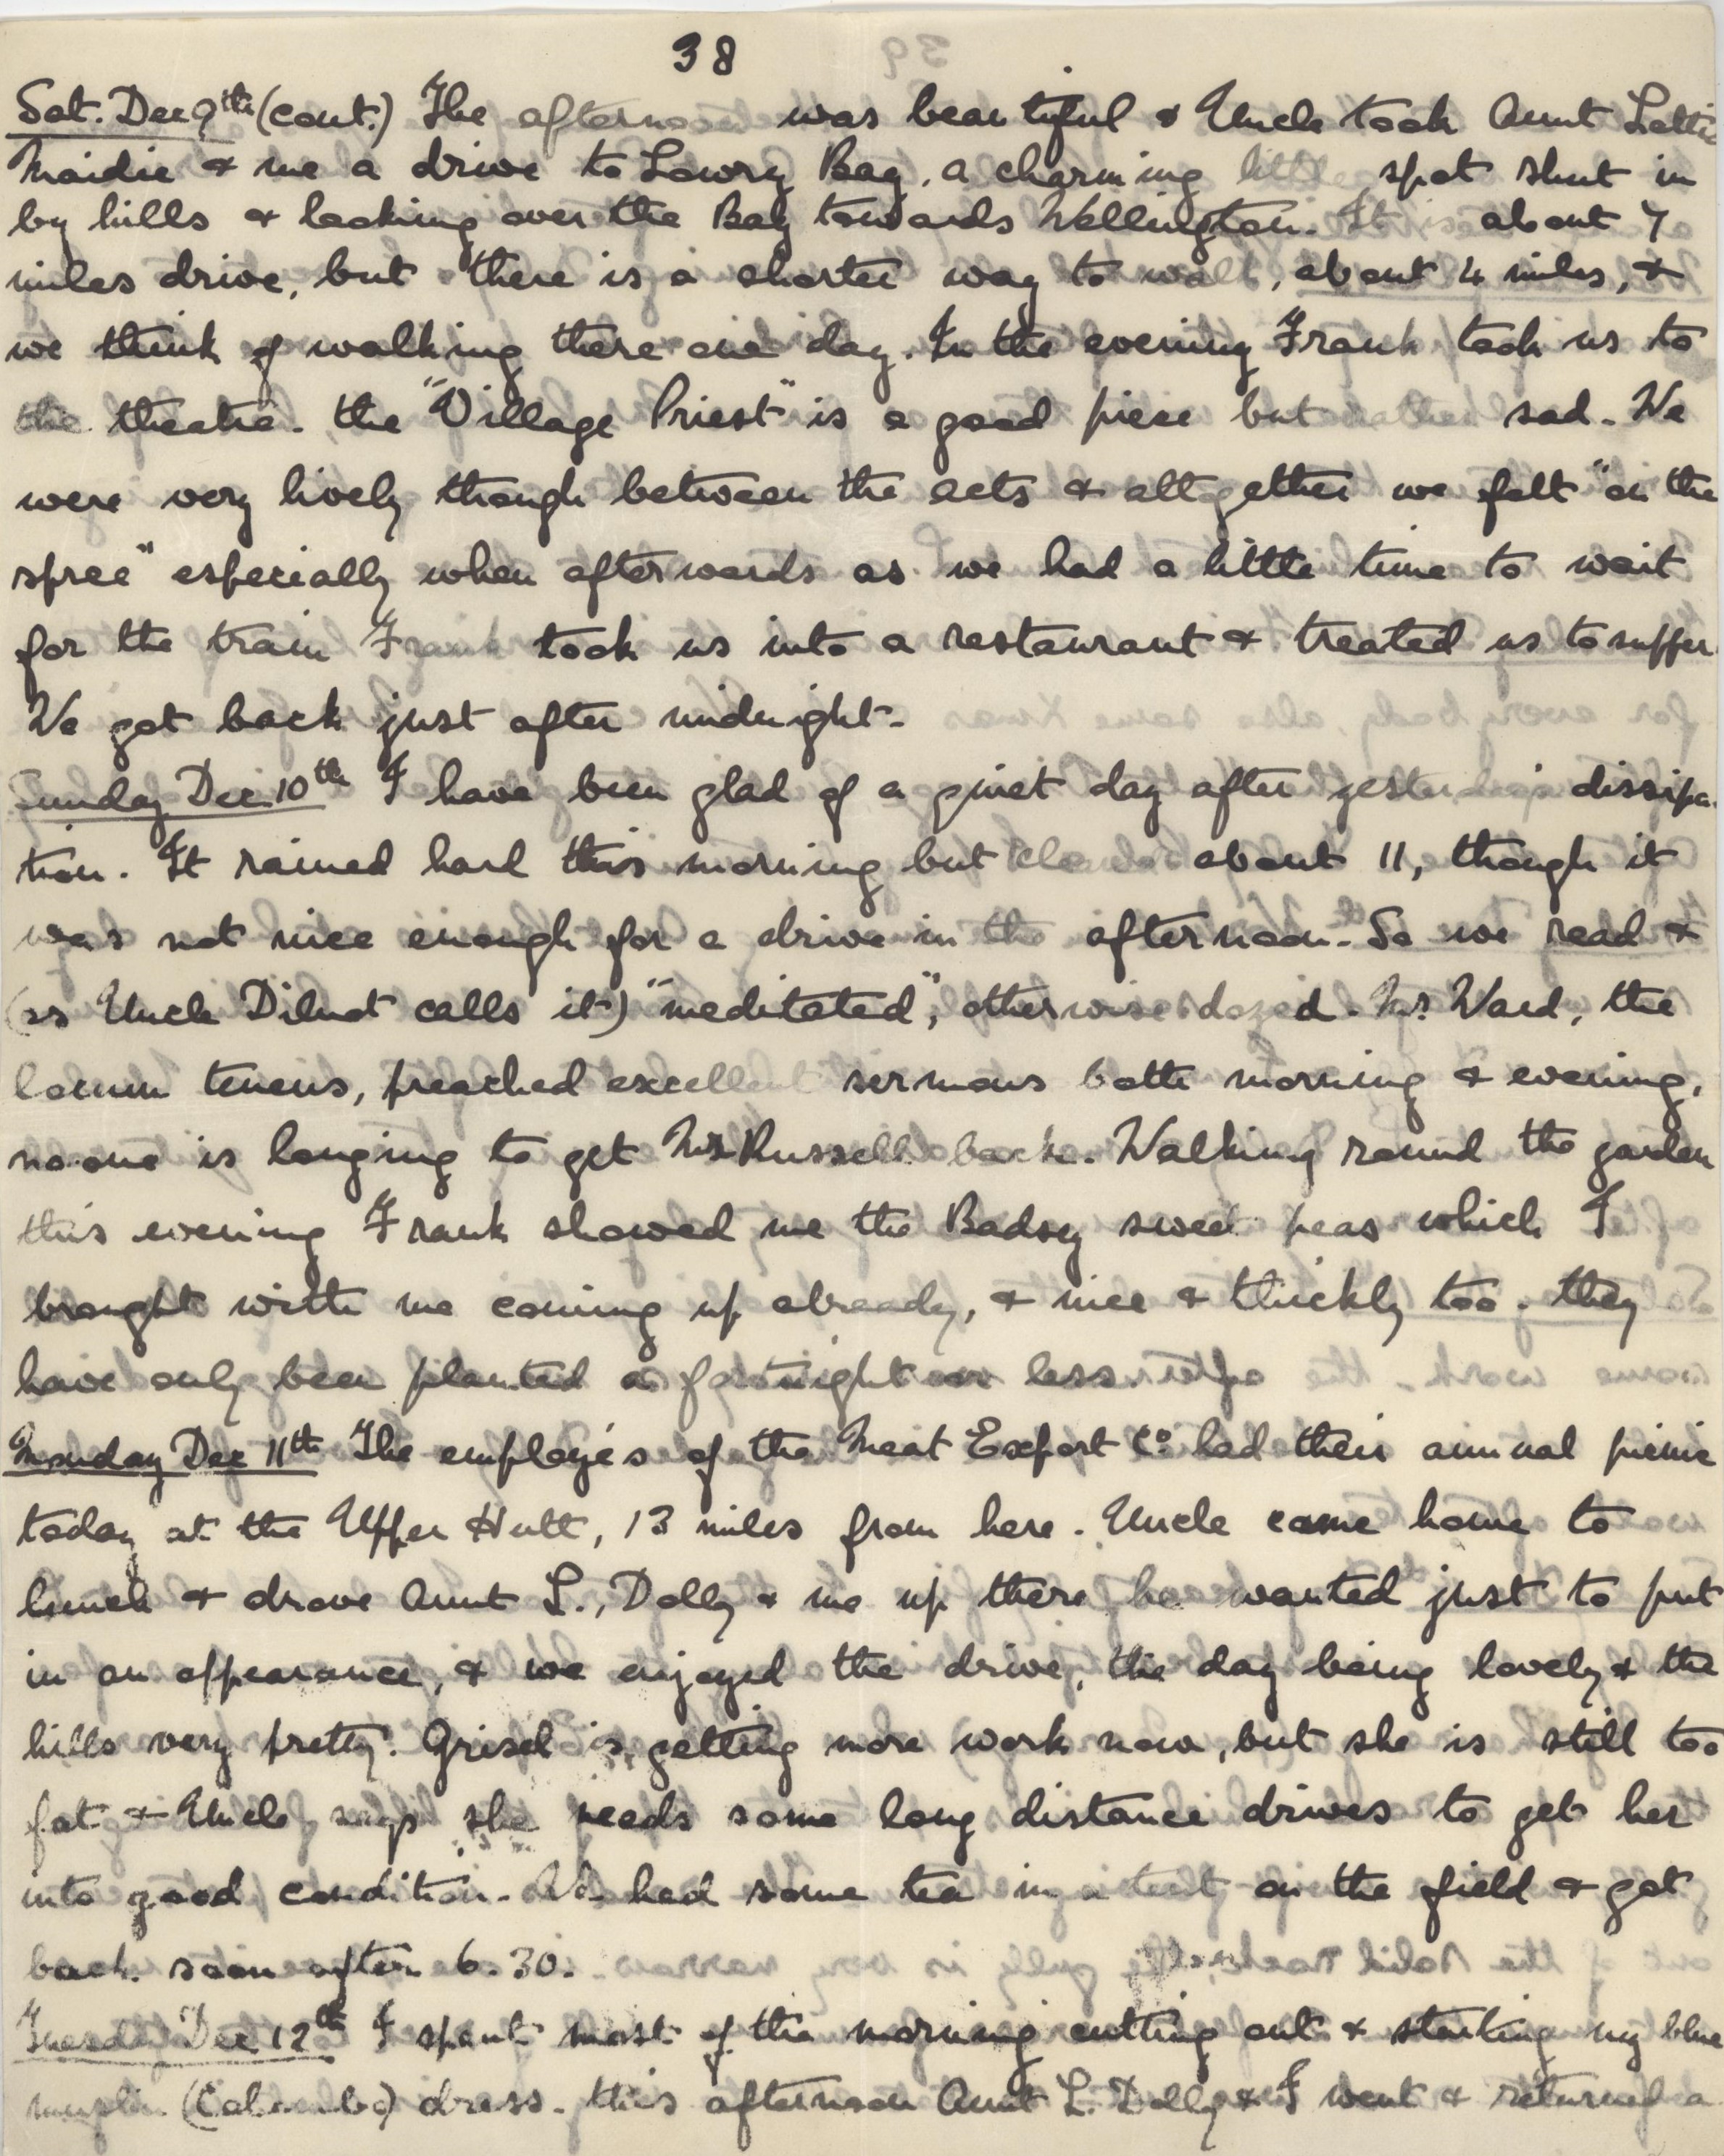 38
Sat. Dec 9th (cont.) The afternoon was beautiful & Uncle took Aunt Lottie
Maidie & me a drive to Lowry Bay, a charming little spot shut in
by hills & looking over the Bay towards Wellington. It about 7
miles drive, but there is a shorter way to walk, about 4 miles, &
we think of walking there one day. In the evening Frank took us to
the theatre. the "Village Priest" is a good piece but rather sad. We
were very lively though between the acts & altogether we felt "on the
spree" especially when afterwards as we had a little time to wait
for the train Frank took us into a restaurant & treated us to supper.
We got back just after midnight.
Sunday Dec 10th I have been glad of a quiet day after yesterday's dissipa-
tion. It rained hard this morning but about 11, though it
was not nice enough for a drive in the afternoon. So we read &
(as Uncle Dilnot calls it) "meditated", otherwise dozed. Mr. Ward, the
locum tenens, preached excellent sermons both morning & evening,
no one is longing to get Mr. Russell back. Walking round the garden
this evening Frank showed me the Badsey sweet peas which I
brought with me coming up already, & nice & thickly too. they
have only been planted a fortnight or less.
Monday Dec 11th The employés of the Meat Export Co. had their annual picnic
today at the Upper Hutt, 13 miles from here. Uncle came home to
lunch & drove Aunt L., Dolly & me up there, he wanted just to put
in an appearance, & we enjoyed the drive, the day being lovely & the
hills very pretty. Grisel is getting more work now, but she is still too
fat & Uncle says she needs some long distance drives to get her
into good condition. We had some tea in a tent on the field & got
back soon after 6.30.
Tuesday Dec 12th I spent most of the morning cutting out & starting my blue
muslin (Colombo) dress. this afternoon Aunt L. Dolly & I went & returned a